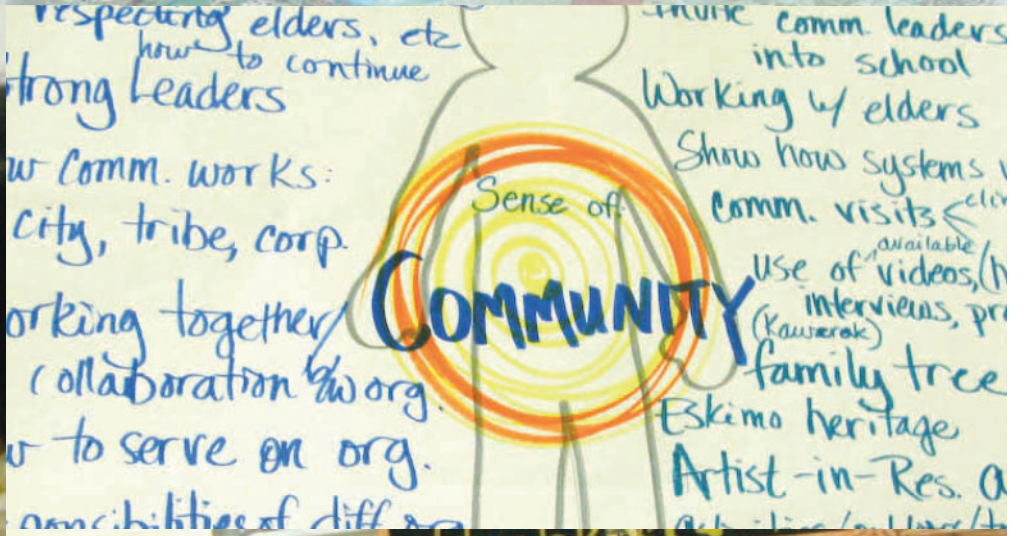 respecting elders, etc
how to continue
Strong Leaders
Comm. works:
city, tribe, corp.
working together/
collaboration b/w org.
to serve on org.
of diff org
Sense of:
COMMUNITY
Invite comm. leaders
into school
Working w/ elders
Show how systems
Comm. visits
available
use of videos,
interviews,
(Kawerak)
family tree
Eskimo heritage
Artist-in-Res.